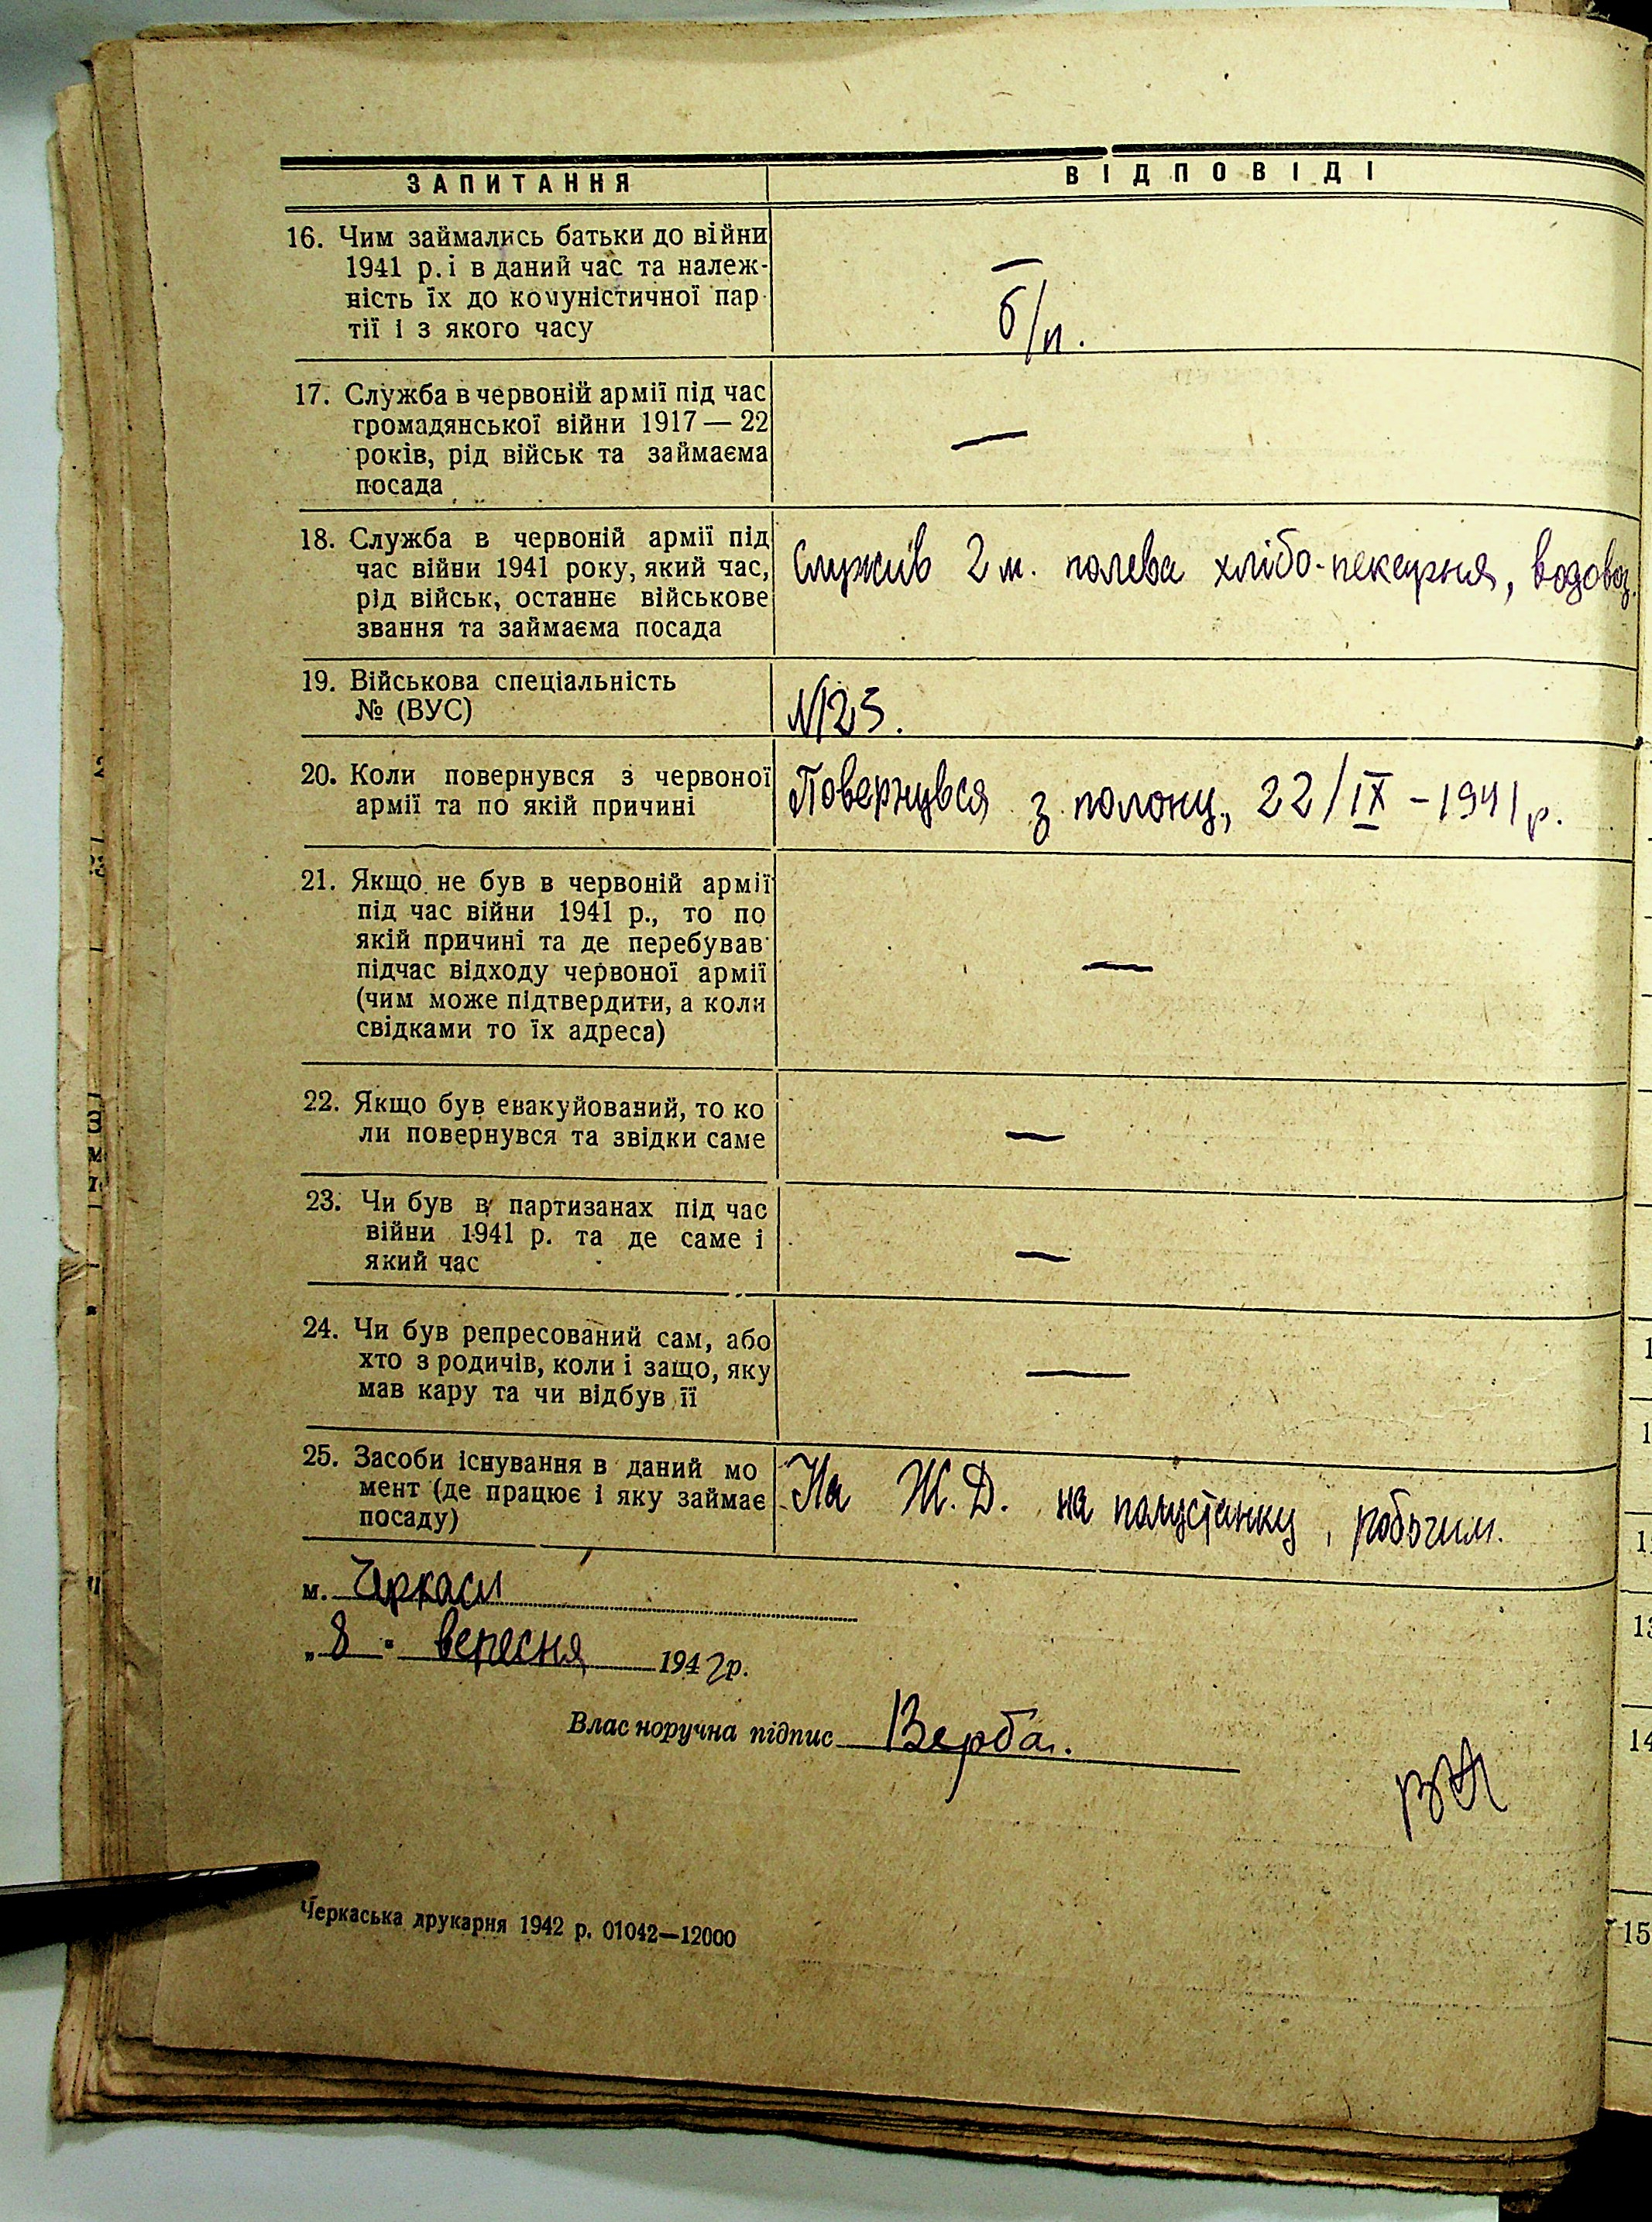 ЗАПИТАННЯ ВІДПОВІДІ
16. Чим займались батьки до війни
1941 р. і в даний час та належ-
ність їх до комуністичної пар
тії і з якого часу
—
б/п.
17. Служба в червоній армії під час
громадянської війни 1917 — 22
років, рід військ та займаєма
посада
—
18. Служба в червоній армії під
час війни 1941 року, який час,
рід військ, останнє військове
звання та займаєма посада
Служив 2 м. полева хлібо-пекарня, водовоз.
19. Військова спеціальність
№ (ВУС)
№125.
20. Коли повернувся з червоної
армії та по якій причині
Повернувся з полону, 22/IX - 1941 р.
21. Якщо не був в червоній армії
під час війни 1941 р., то по
якій причині та де перебував
підчас відходу червоної армії
(чим може підтвердити, а коли
свідками то їх адреса)
—
22. Якщо був евакуйований, то ко
ли повернувся та звідки саме
—
23. Чи був в партизанах під час
війни 1941 р. та де саме і
який час
—
24. Чи був репресований сам, або
хто з родичів, коли і защо, яку
мав кару та чи відбув її
—
25. Засоби існування в даний мо
мент (де працює і яку займає
посаду)
На Ж.Д. на полустанку, робочим.
м. Черкаси
„8" вересня 1942 р.
Власноручна підпис Верба.
Черкаська друкарня 1942 р. 01042—12000